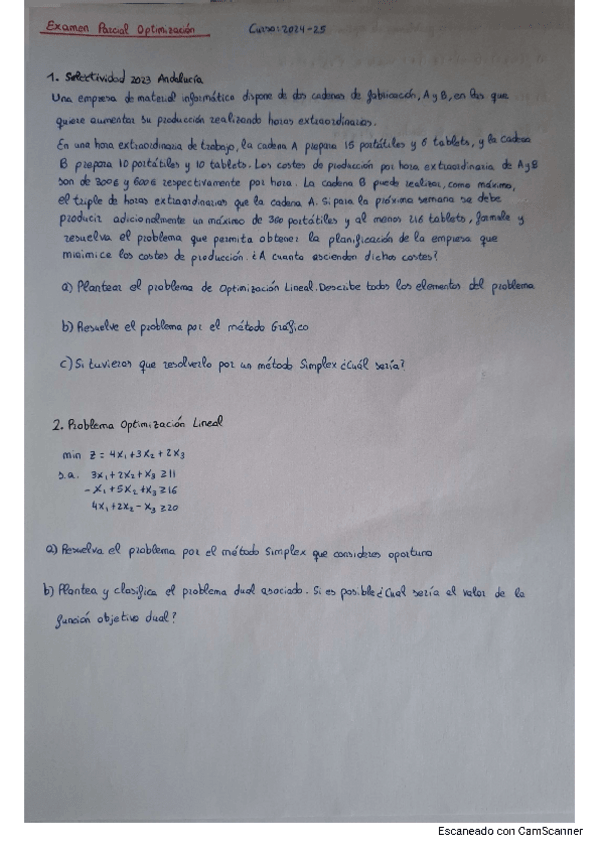 Examen Parcial Optimización Curso: 2024-25
1. Selectividad 2023 Andalucía
Una empresa de material informático dispone de dos cadenas de fabricación, A y B, en las que
quiere aumentar su producción realizando horas extraordinarias.
En una hora extraordinaria de trabajo, la cadena A prepara 15 portátiles y 6 tablets, y la cadena
B prepara 10 portátiles y 10 tablets. Los costes de producción por hora extraordinaria de A y B
son de 300€ y 600€ respectivamente por hora. La cadena B puede realizar, como máximo,
el triple de horas extraordinarias que la cadena A. Si para la próxima semana se debe
producir adicionalmente un máximo de 360 portátiles y al menos 216 tablets, formule y
resuelva el problema que permita obtener la planificación de la empresa que
minimice los costes de producción. ¿A cuanto ascienden dichos costes?
a) Plantear el problema de Optimización Lineal. Describe todos los elementos del problema
b) Resuelve el problema por el método Gráfico
c) Si tuvieras que resolverlo por un método Simplex ¿Cuál sería?
2. Problema Optimización Lineal
min Z = 4X₁ + 3X₂ + 2X₃
s.a. 3X₁ + 2X₂ + X₃ ≥ 11
-X₁ + 5X₂ + X₃ ≥ 16
4X₁ + 2X₂ - X₃ ≥ 20
a) Resuelva el problema por el método Simplex que consideres oportuno
b) Plantea y clasifica el problema dual asociado. Si es posible ¿Cual sería el valor de la
función objetivo dual?
Escaneado con CamScanner